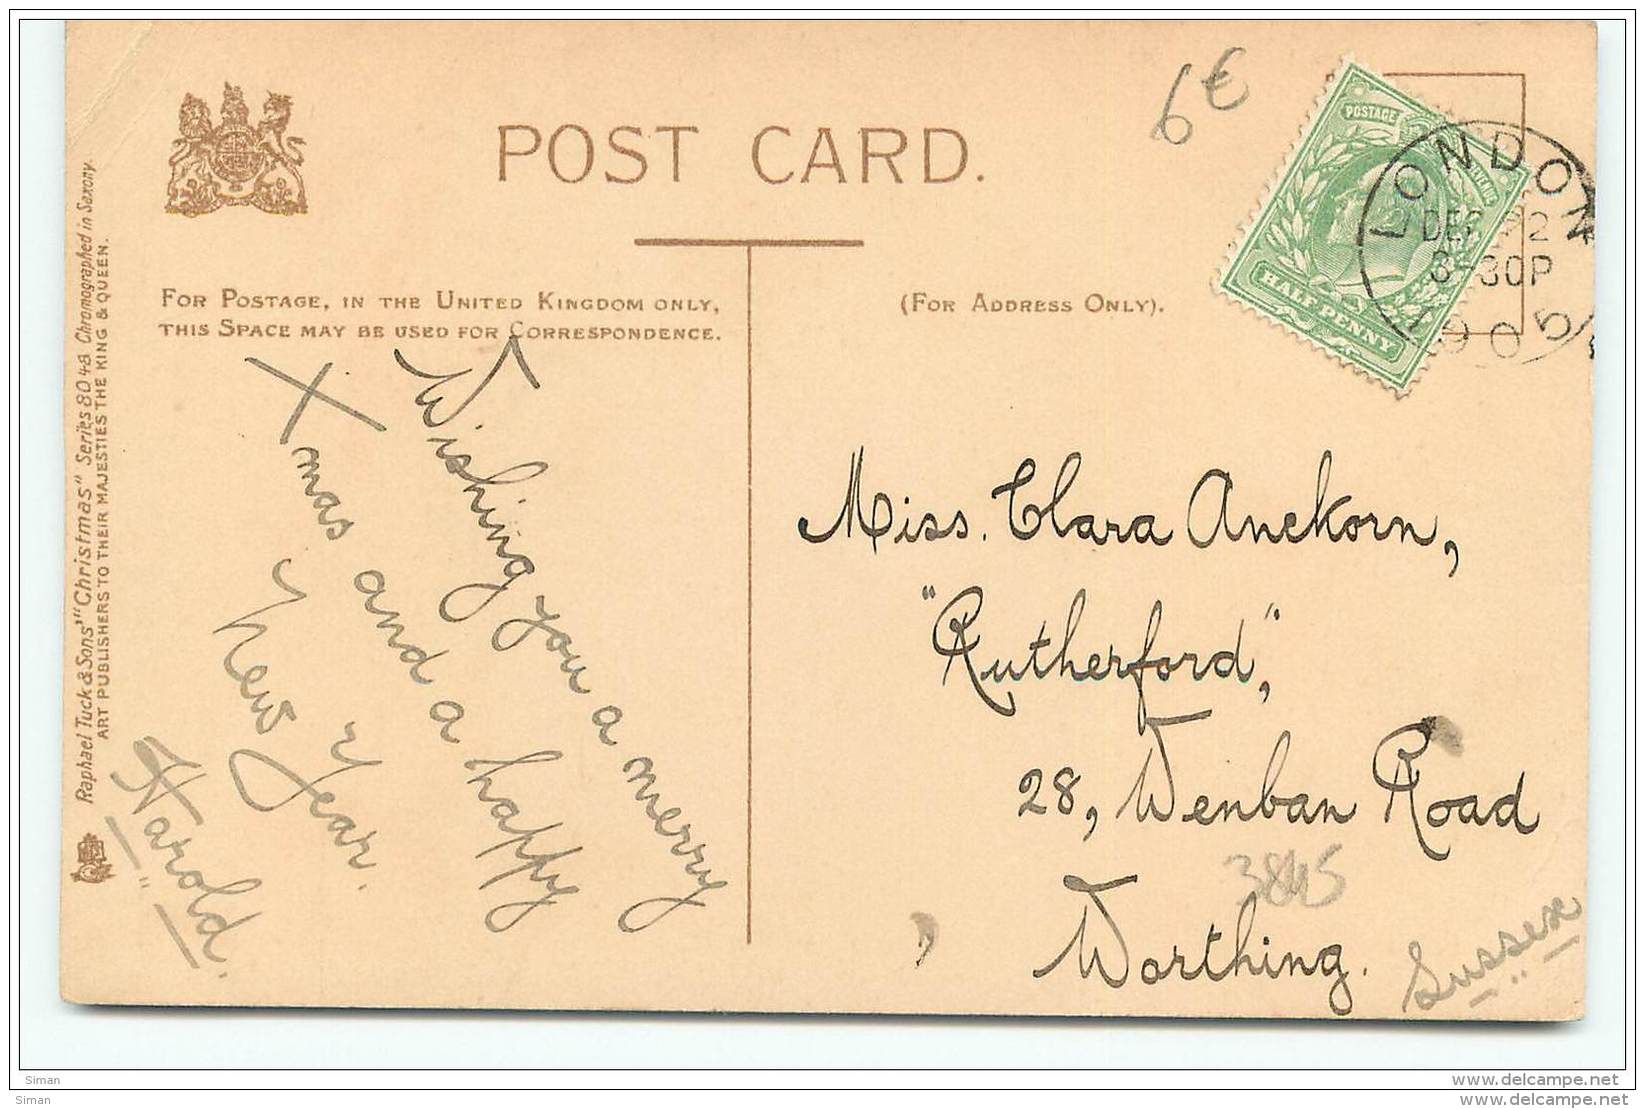 POST CARD.
6€
POSTAGE
HALFPENNY
LONDON
DEC 22
3-30P
1905
FOR POSTAGE, IN THE UNITED KINGDOM ONLY,
THIS SPACE MAY BE USED FOR CORRESPONDENCE.
(FOR ADDRESS ONLY).
Raphael Tuck & Sons' "Christmas" Series 8048 Chromographed in Saxony.
ART PUBLISHERS TO THEIR MAJESTIES THE KING & QUEEN.
Wishing you a merry
Xmas and a happy
New Year.
Harold.
Miss. Clara Anekorn,
"Rutherford",
28, Wenban Road
3845
Worthing.
Sussex
Siman
www.delcampe.net
Siman
www.delcampe.net